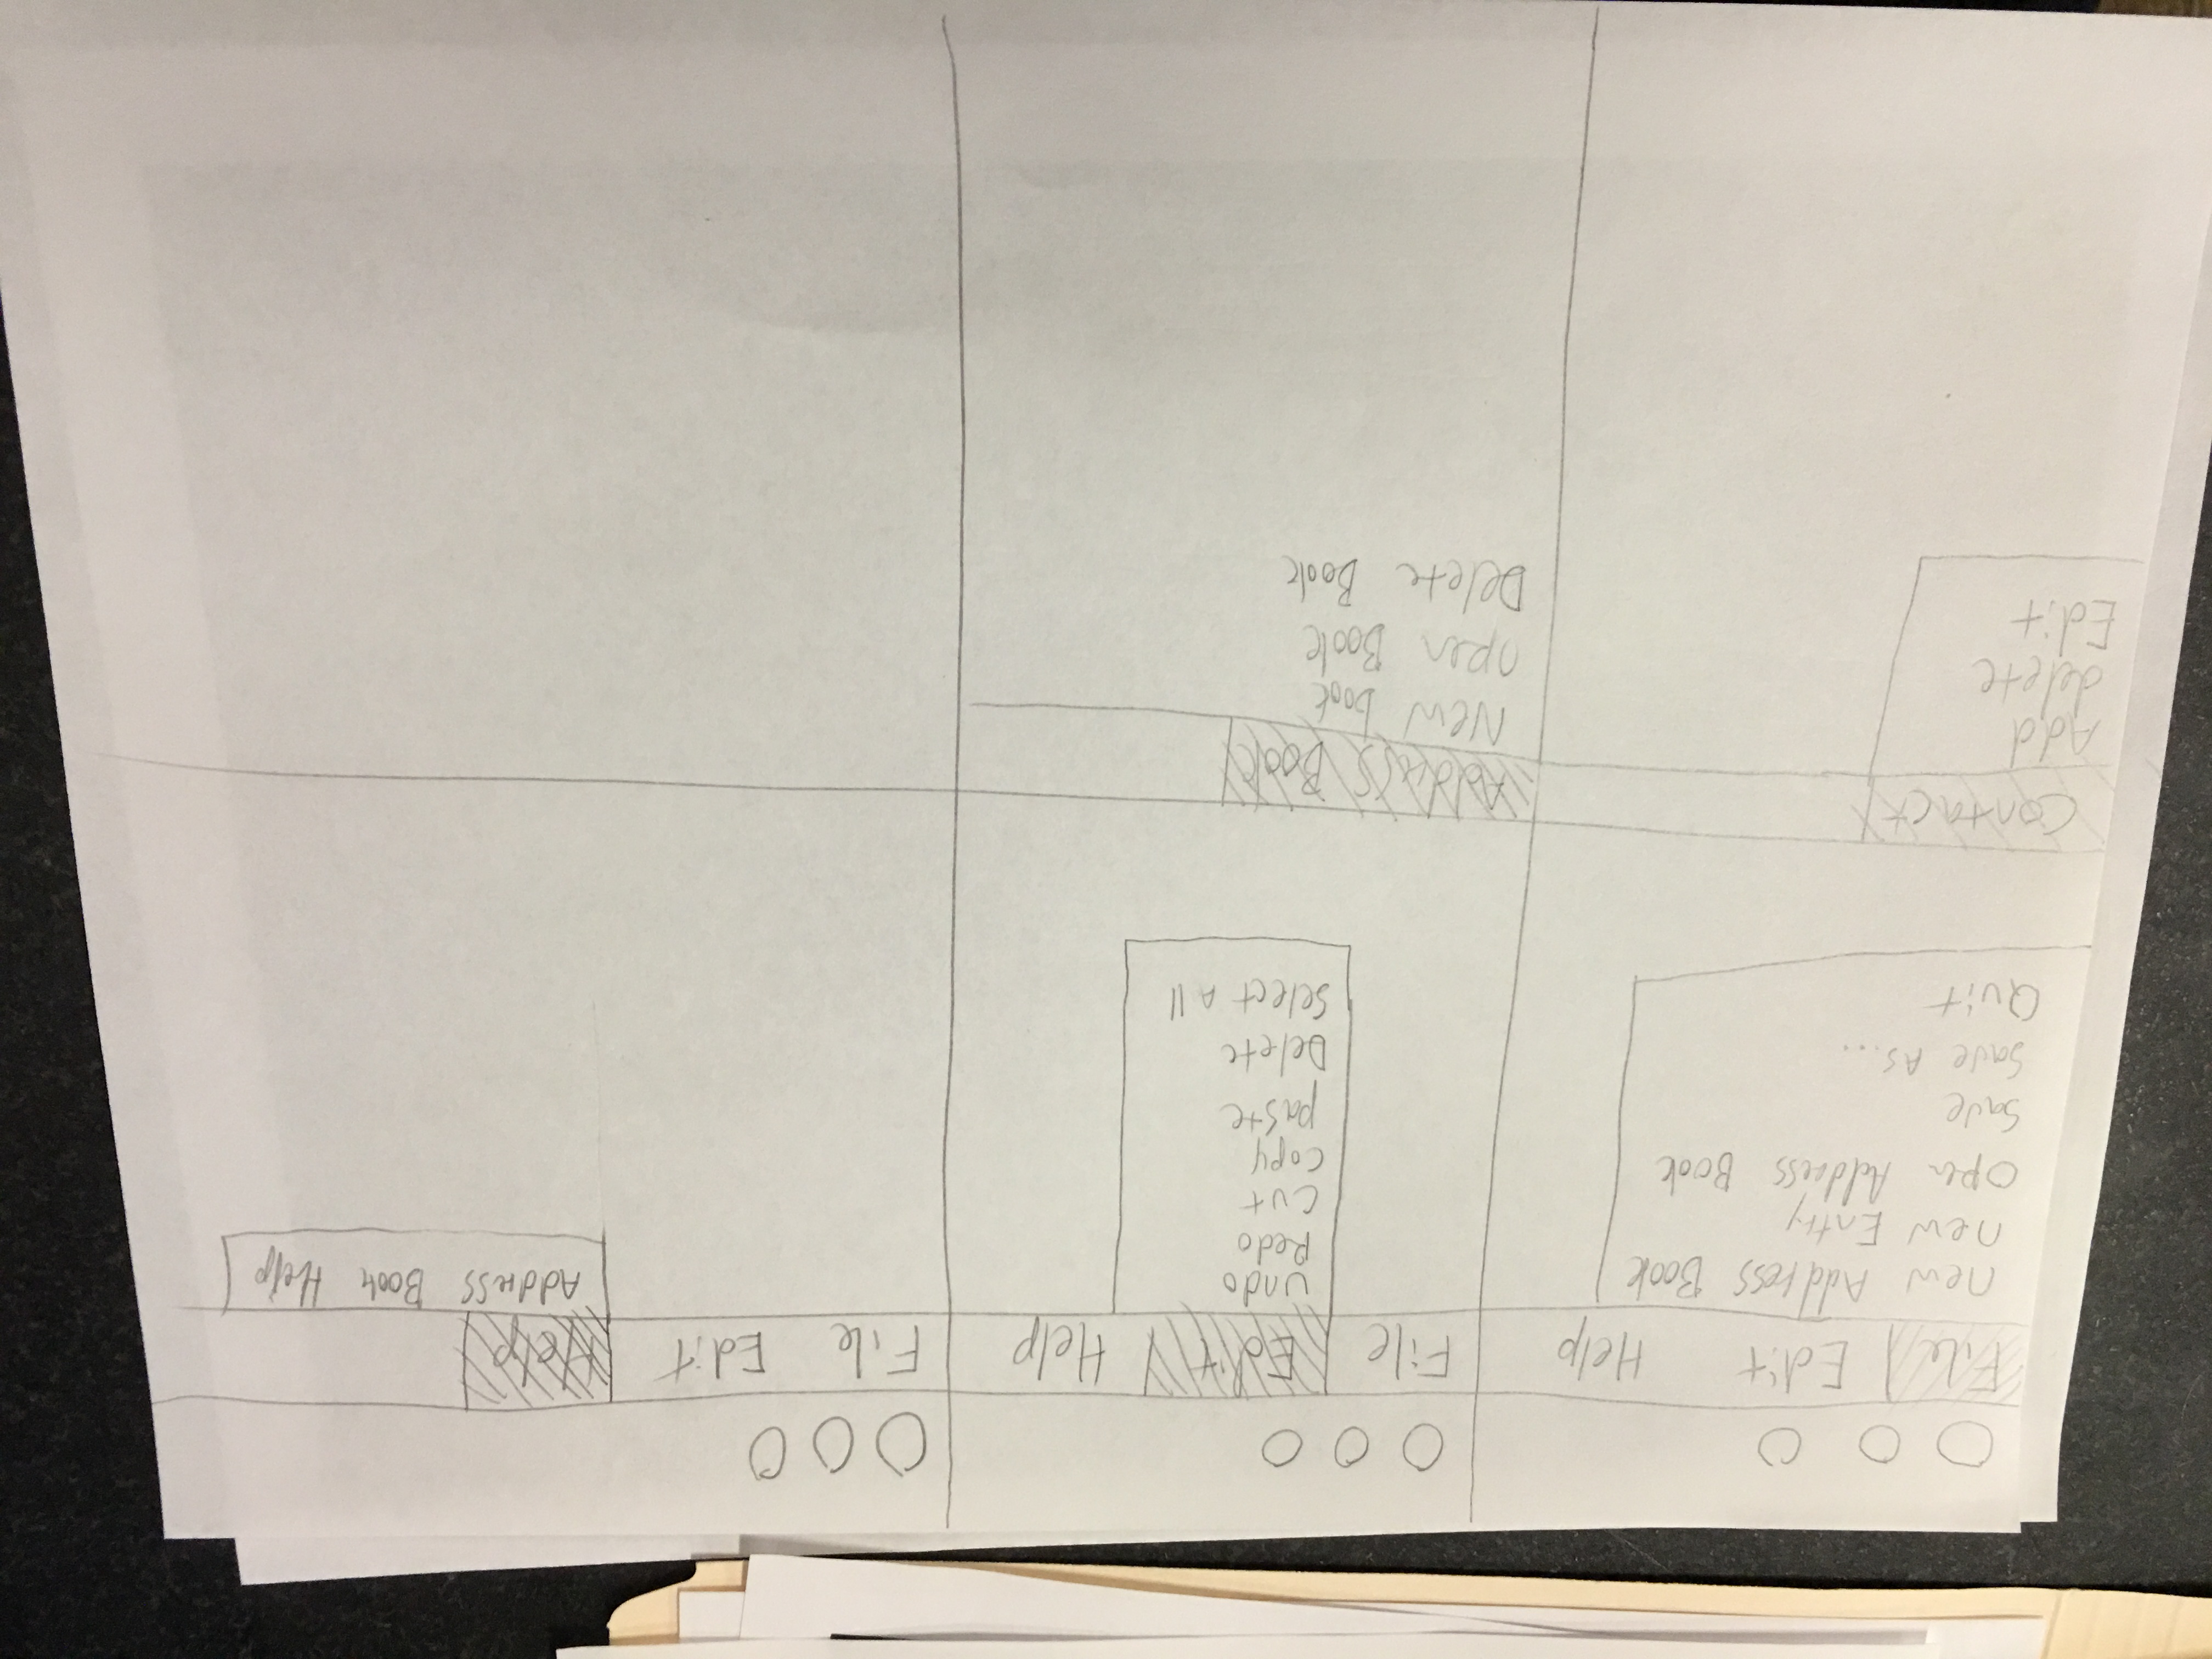 File Edit Help
new Address Book
new Entry
open Address Book
Save
Save As...
Quit
File Edit Help
Undo
Redo
Cut
Copy
paste
Delete
Select All
File Edit Help
Address Book Help
Contact
Add
delete
Edit
Address Book
New book
open Book
Delete Book